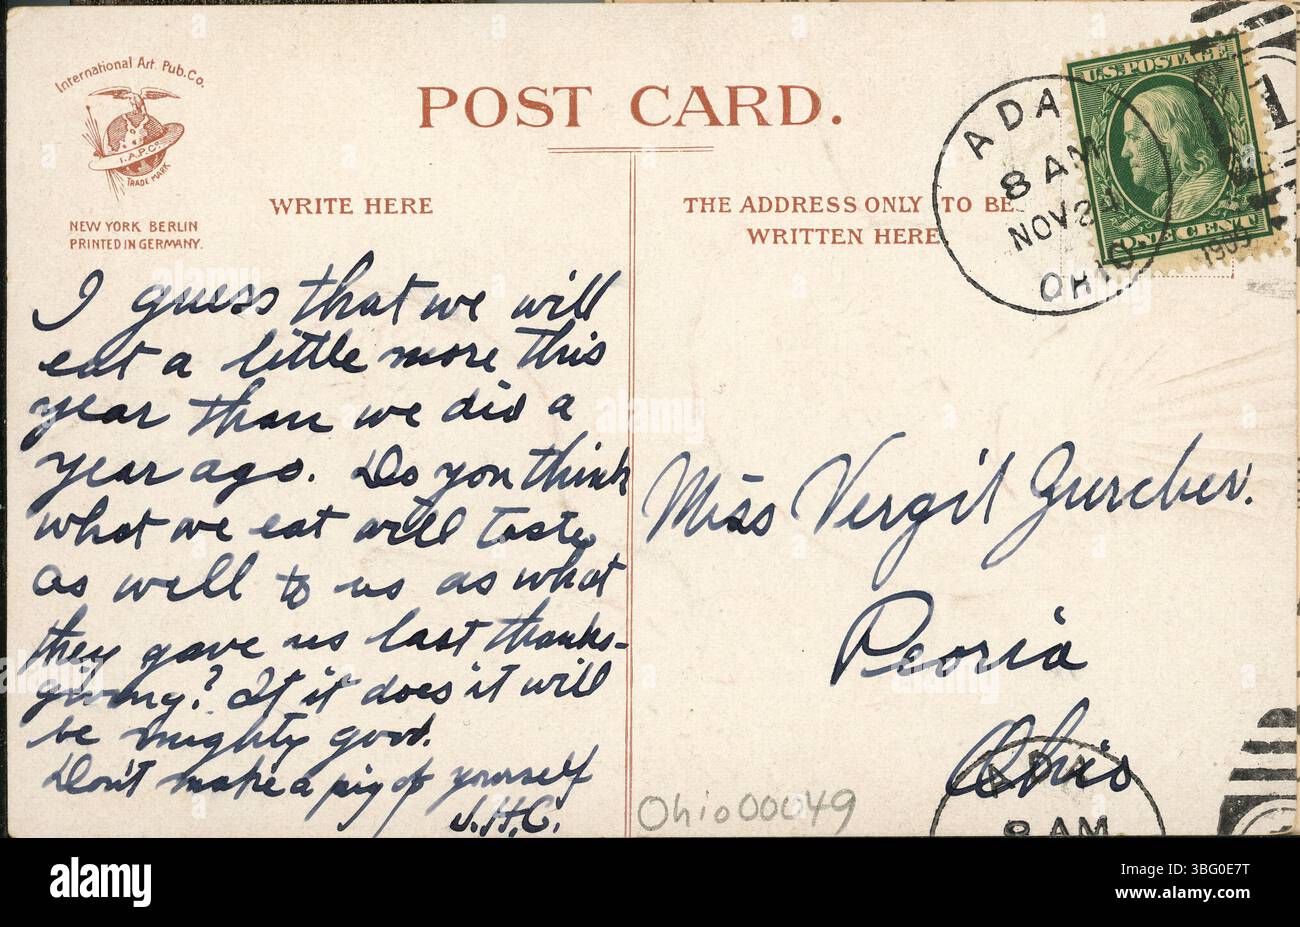 International Art Pub. Co.
I.A.P.Co.
TRADE MARK
NEW YORK BERLIN
PRINTED IN GERMANY.
POST CARD.
WRITE HERE
THE ADDRESS ONLY TO BE
WRITTEN HERE
ADA
8 AM
NOV 24
1909
OHIO
U.S. POSTAGE
ONE CENT
1
I guess that we will
eat a little more this
year than we did a
year ago. Do you think
what we eat will taste
as well to us as what
they gave us last thanks-
giving? If it does it will
be mighty good.
Don't make a pig of yourself
J.H.C.
Miss Vergil Gurcher.
Peoria
Ohio
Ohio00049
ADA
8 AM
alamy
Image ID: 3BG0E7T
www.alamy.com